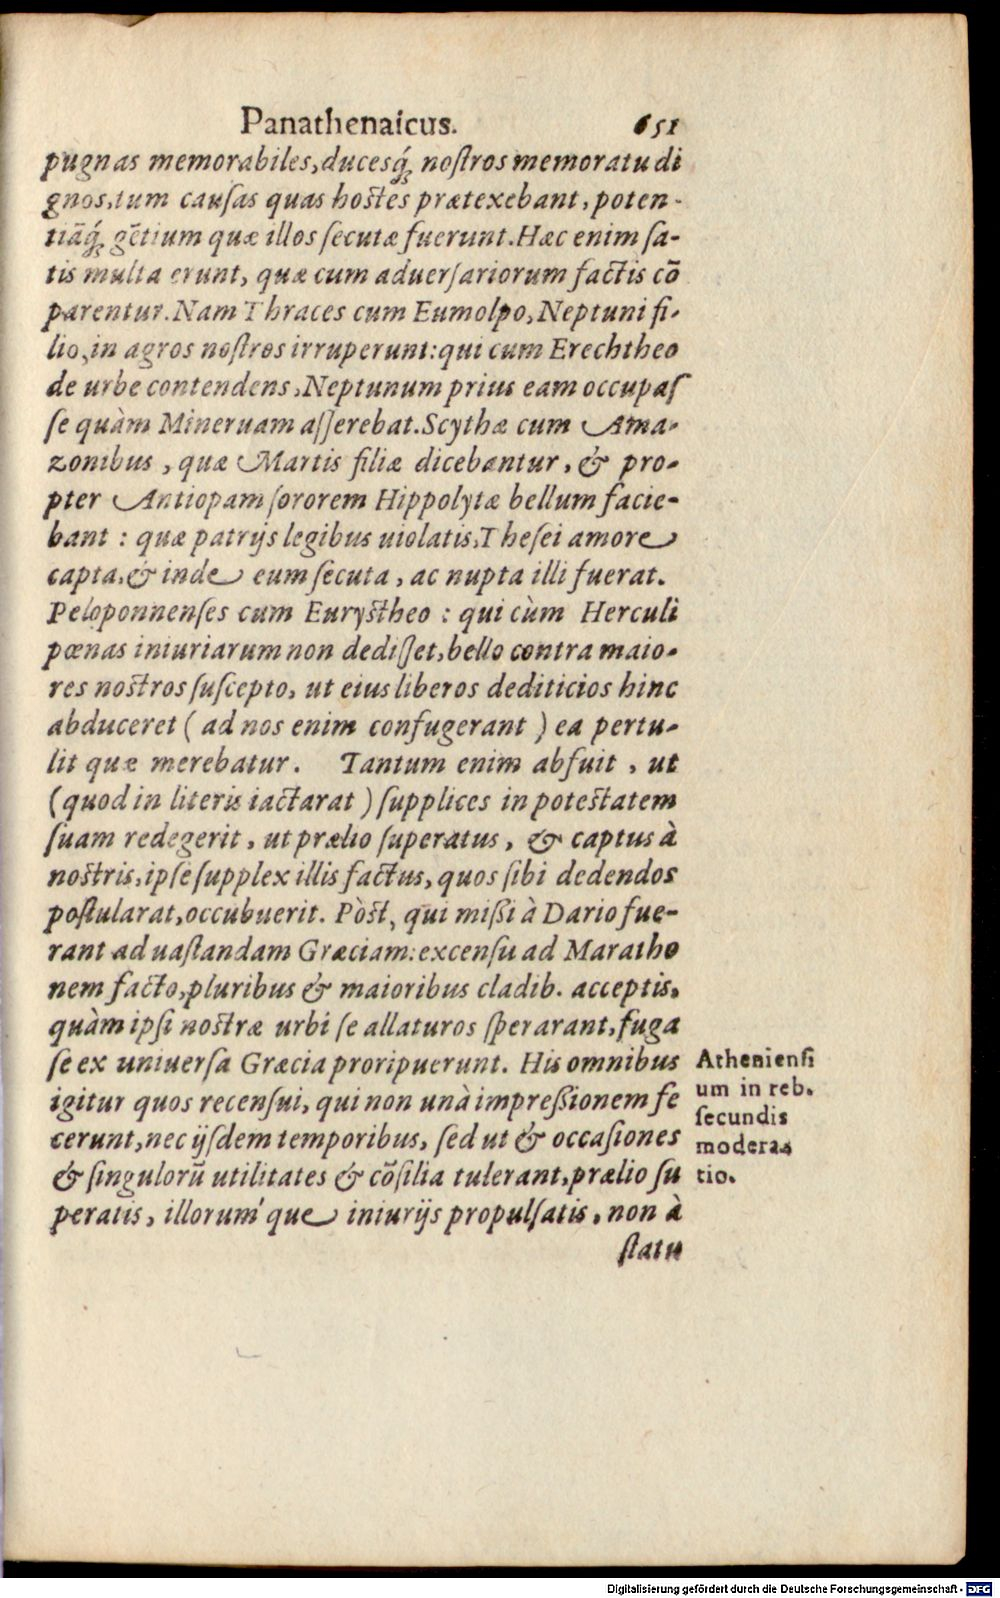 Panathenaicus. 651
pugnas memorabiles, ducesq́; nostros memoratu di
gnos, tum causas quas hostes prætexebant, poten-
tiāq́; gētium quæ illos secutæ fuerunt. Hæc enim sa-
tis multa erunt, quæ cum aduersariorum factis cō
parentur. Nam Thraces cum Eumolpo, Neptuni fi-
lio, in agros nostros irruperunt: qui cum Erechtheo
de urbe contendens, Neptunum prius eam occupas
se quàm Mineruam asserebat. Scythæ cum Ama-
zonibus, quæ Martis filiæ dicebantur, & pro-
pter Antiopam sororem Hippolytæ bellum facie-
bant: quæ patrijs legibus uiolatis, Thesei amore
capta, & inde eum secuta, ac nupta illi fuerat.
Peloponnenses cum Eurystheo: qui cùm Herculi
pœnas iniuriarum non dedisset, bello contra maio-
res nostros suscepto, ut eius liberos dediticios hinc
abduceret (ad nos enim confugerant) ea pertu-
lit quæ merebatur. Tantum enim abfuit, ut
(quod in literis iactarat) supplices in potestatem
suam redegerit, ut prælio superatus, & captus à
nostris, ipse supplex illis factus, quos sibi dedendos
postularat, occubuerit. Pòst, qui mißi à Dario fue-
rant ad uastandam Græciam: excensu ad Maratho
nem facto, pluribus & maioribus cladib. acceptis,
quàm ipsi nostræ urbi se allaturos sperarant, fuga
se ex uniuersa Græcia proripuerunt. His omnibus
igitur quos recensui, qui non unà impreßionem fe
cerunt, nec ijsdem temporibus, sed ut & occasiones
& singulorū utilitates & cōsilia tulerant, prælio su
peratis, illoruḿque iniurijs propulsatis, non à
statu
Atheniensi
um in reb.
secundis
modera-
tio.
Digitalisierung gefördert durch die Deutsche Forschungsgemeinschaft - DFG